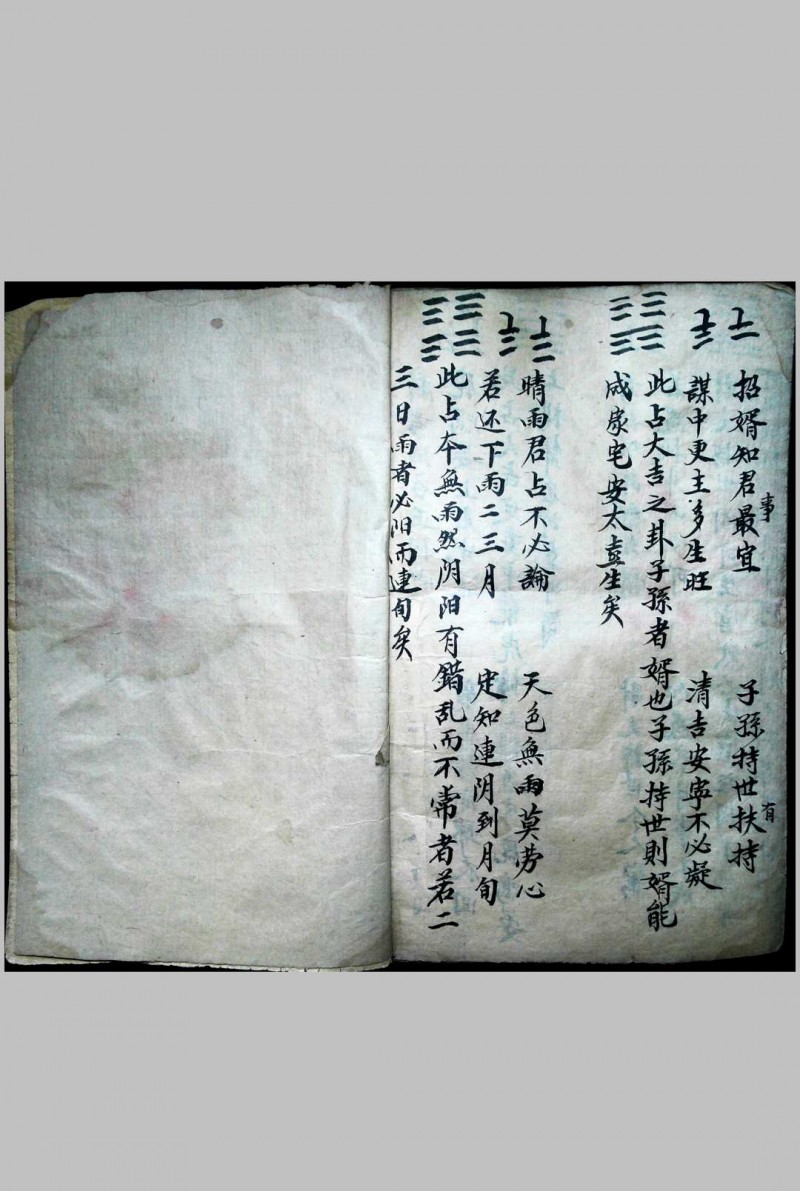 招婿知君事最宜 子孫持世有扶持
謀中更主多生旺 清吉安寧不必凝
此占大吉之卦子孫者婿也子孫持世則婿能
成家宅安太喜生矣
晴雨君占不必論 天色無雨莫劳心
若还下雨二三月 定知連阴到月旬
此占本無雨然阴阳有錯乱而不常者若二
三日雨者必阳而連旬矣